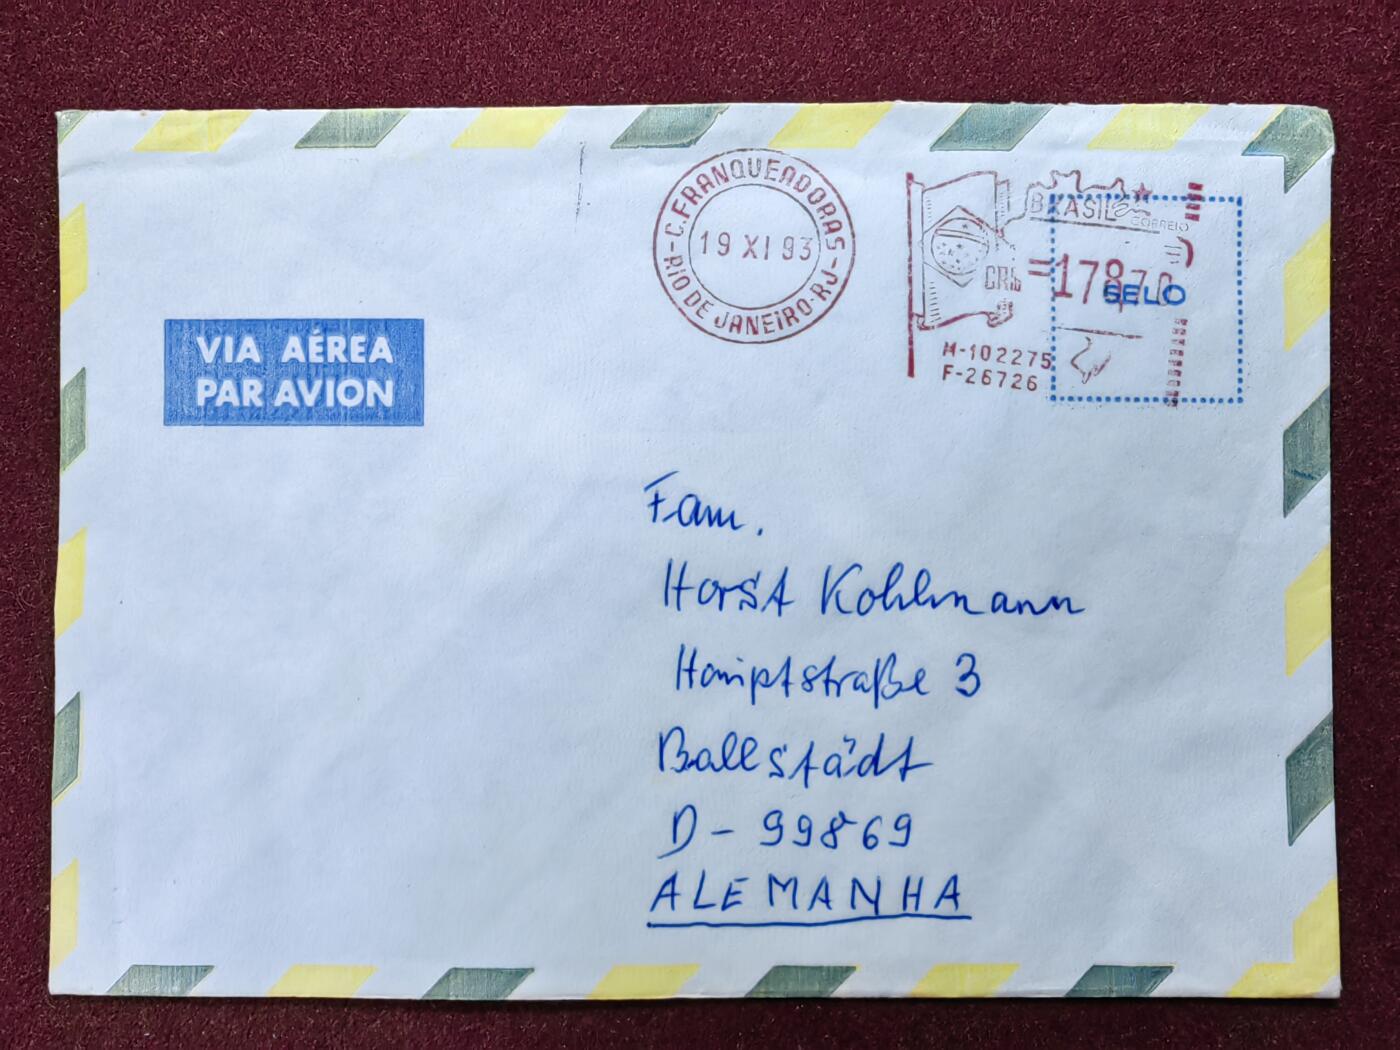 C. FRANQUEADORAS
19 XI 93
RIO DE JANEIRO-RJ
BRASIL
CORREIO
SELO
M-102275
F-26726
VIA AÉREA
PAR AVION
Fam.
Horst Kohlmann
Hauptstraße 3
Ballstädt
D-99869
ALEMANHA